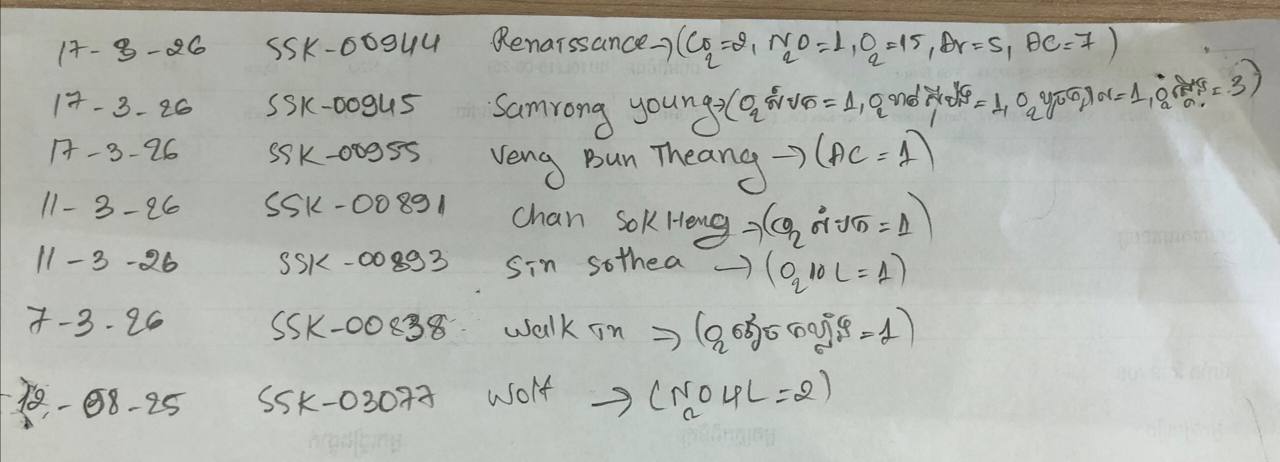 17-3-26 SSK-00944 Renaissance→(CO2=2, N2O=1, O2=15, Ar=5, AC=7)
17-3-26 SSK-00945 Samrong young→(O2 សំប៉ត=1, O2 =1, O2 =1, =3)
17-3-26 SSK-00955 Veng Bun Theang →(AC=1)
11-3-26 SSK-00891 Chan Sok Heng→( សំប៉ត=1)
11-3-26 SSK-00893 Sin Sothea →(O2 10L=1)
7-3-26 SSK-00838 Walk in →(O2 =1)
12-08-25 SSK-03077 Wolf →(N2O 4L=2)